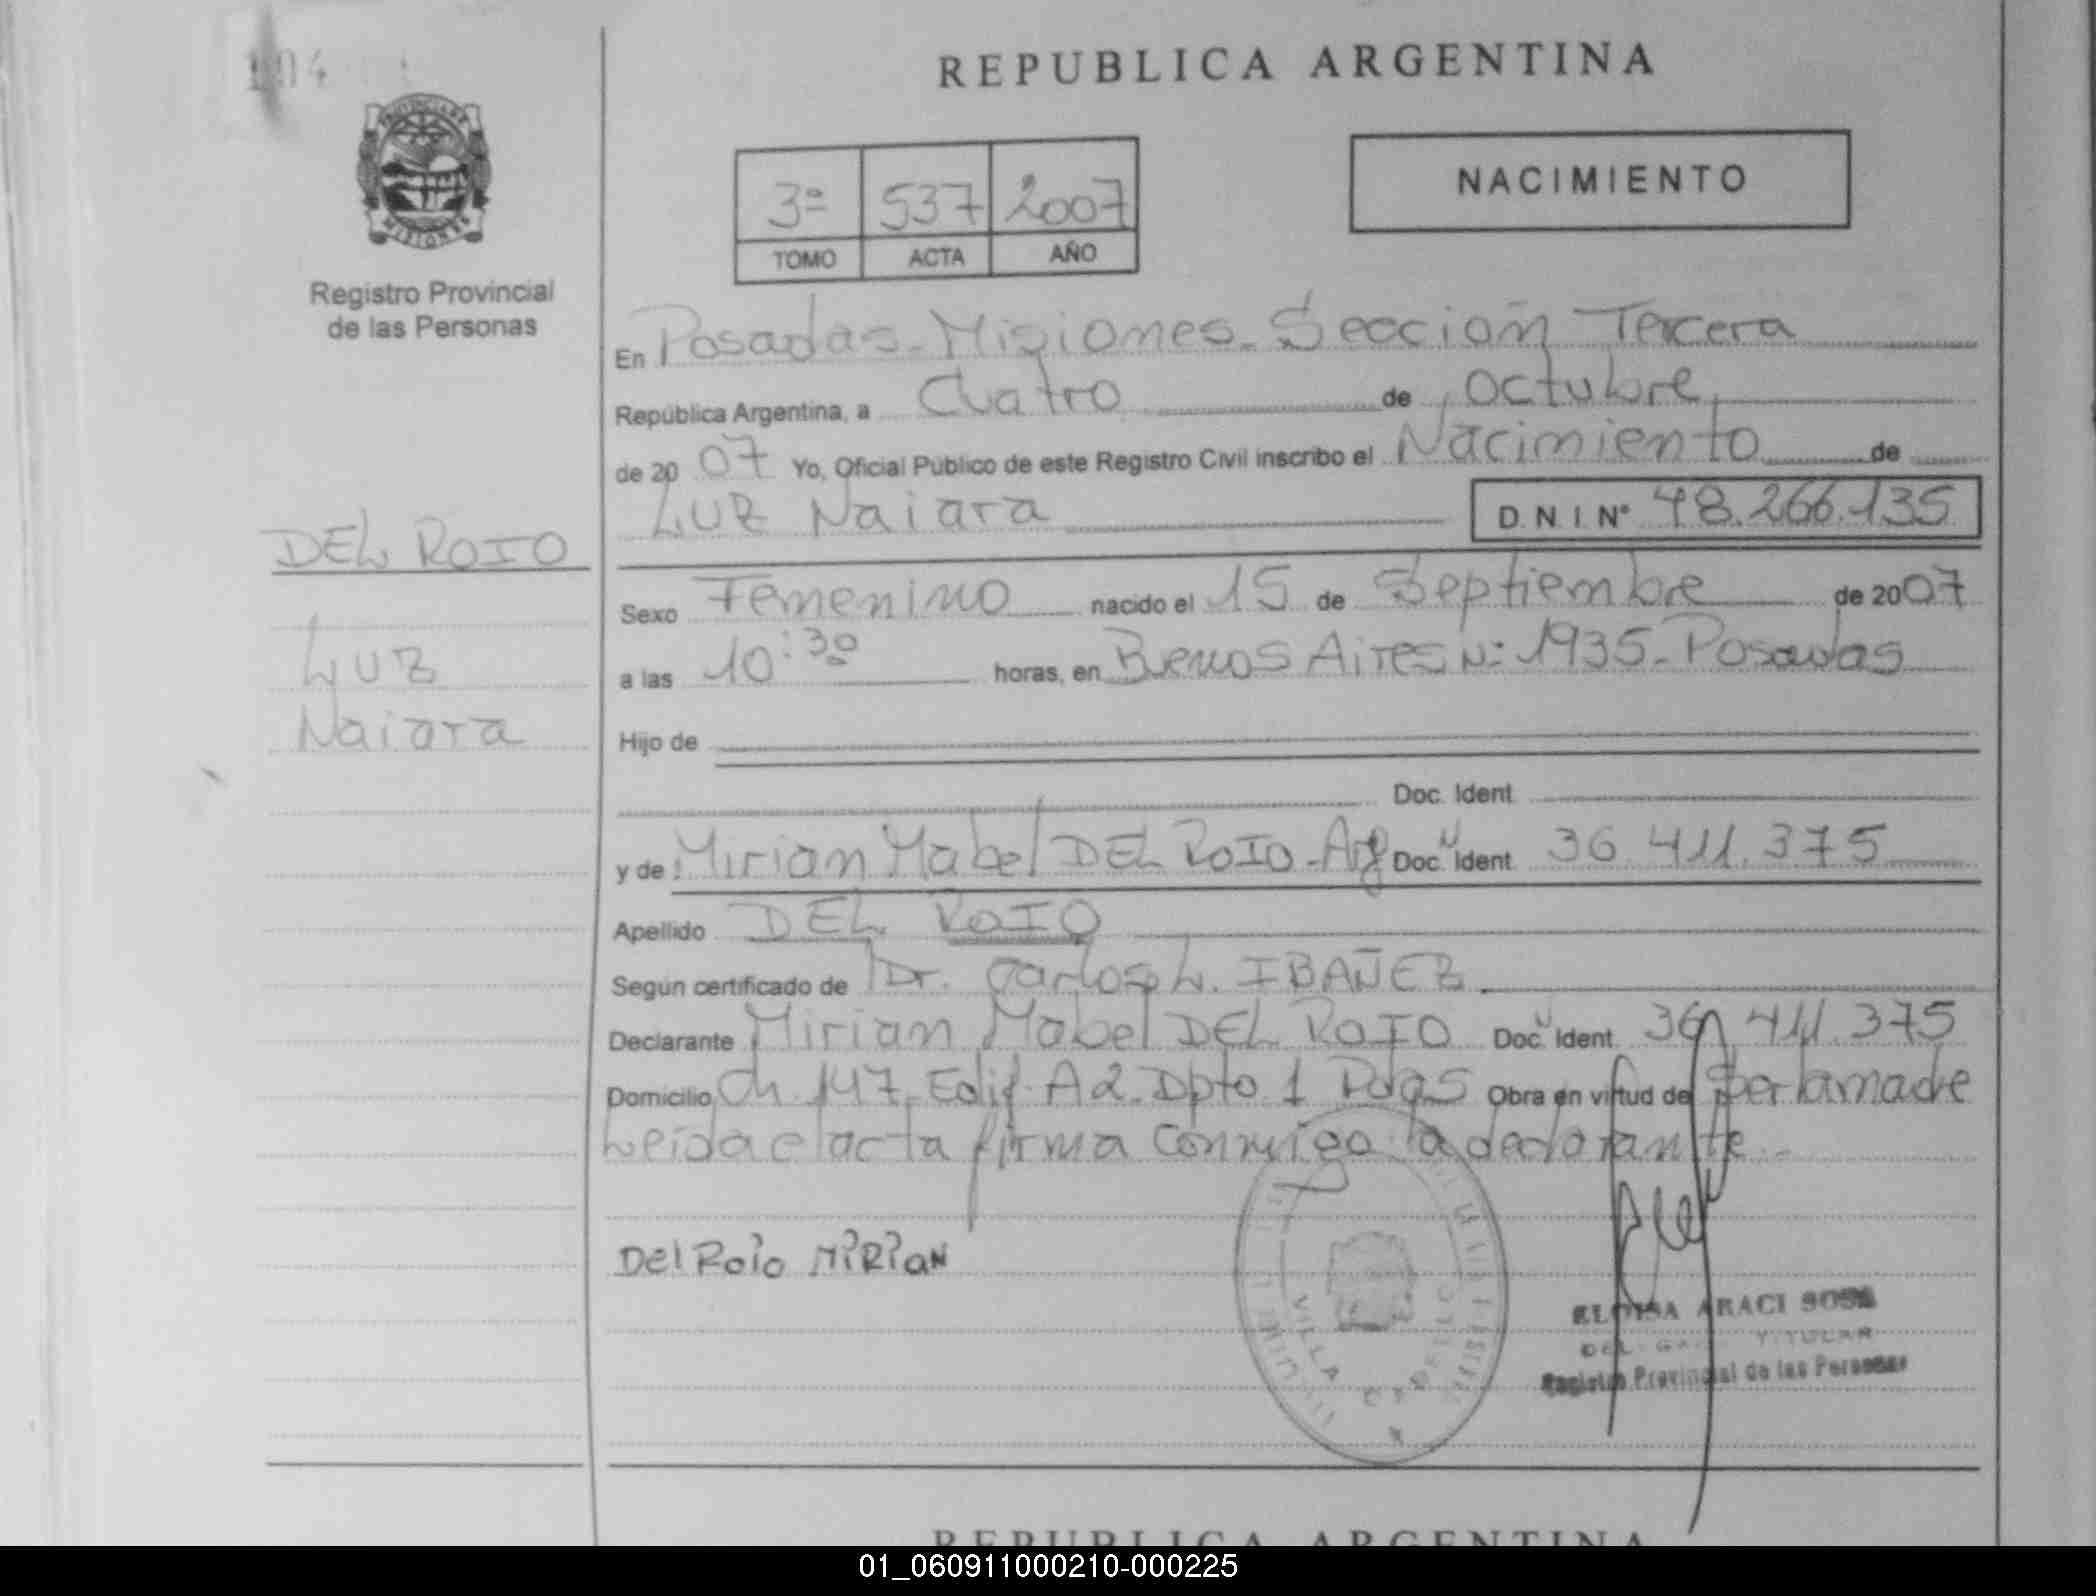 104
PROVINCIA DE
MISIONES
Registro Provincial
de las Personas
DEL ROIO
LUZ
Naiara
REPUBLICA ARGENTINA
3ª 537 2007
TOMO ACTA AÑO
NACIMIENTO
En Posadas - Misiones - Sección Tercera
República Argentina, a Cuatro de Octubre
de 20 07 Yo, Oficial Público de este Registro Civil inscribo el Nacimiento de
LUZ Naiara D.N.I. N° 48.266.135
Sexo Femenino nacido el 15 de Septiembre de 2007
a las 10:30 horas, en Buenos Aires N: 1935 - Posadas
Hijo de
Doc. Ident.
y de: Mirian Mabel DEL ROIO - Arg Doc. Ident. 36.411.375
Apellido DEL ROIO
Según certificado de Dr. Carlos L. IBAÑEZ
Declarante Mirian Mabel DEL ROIO Doc. Ident. 36.411.375
Domicilio Ch. 147 Edif. A2. Dpto. 1 Pdas Obra en virtud de Ser la madre
Leida el acta firma conmigo la declarante.-
Del Roio MiRiaN
VILLA CABELLO
ELOISA ARACI SOSA
Registro Provincial de las Personas
REPUBLICA ARGENTINA
01_060911000210-000225